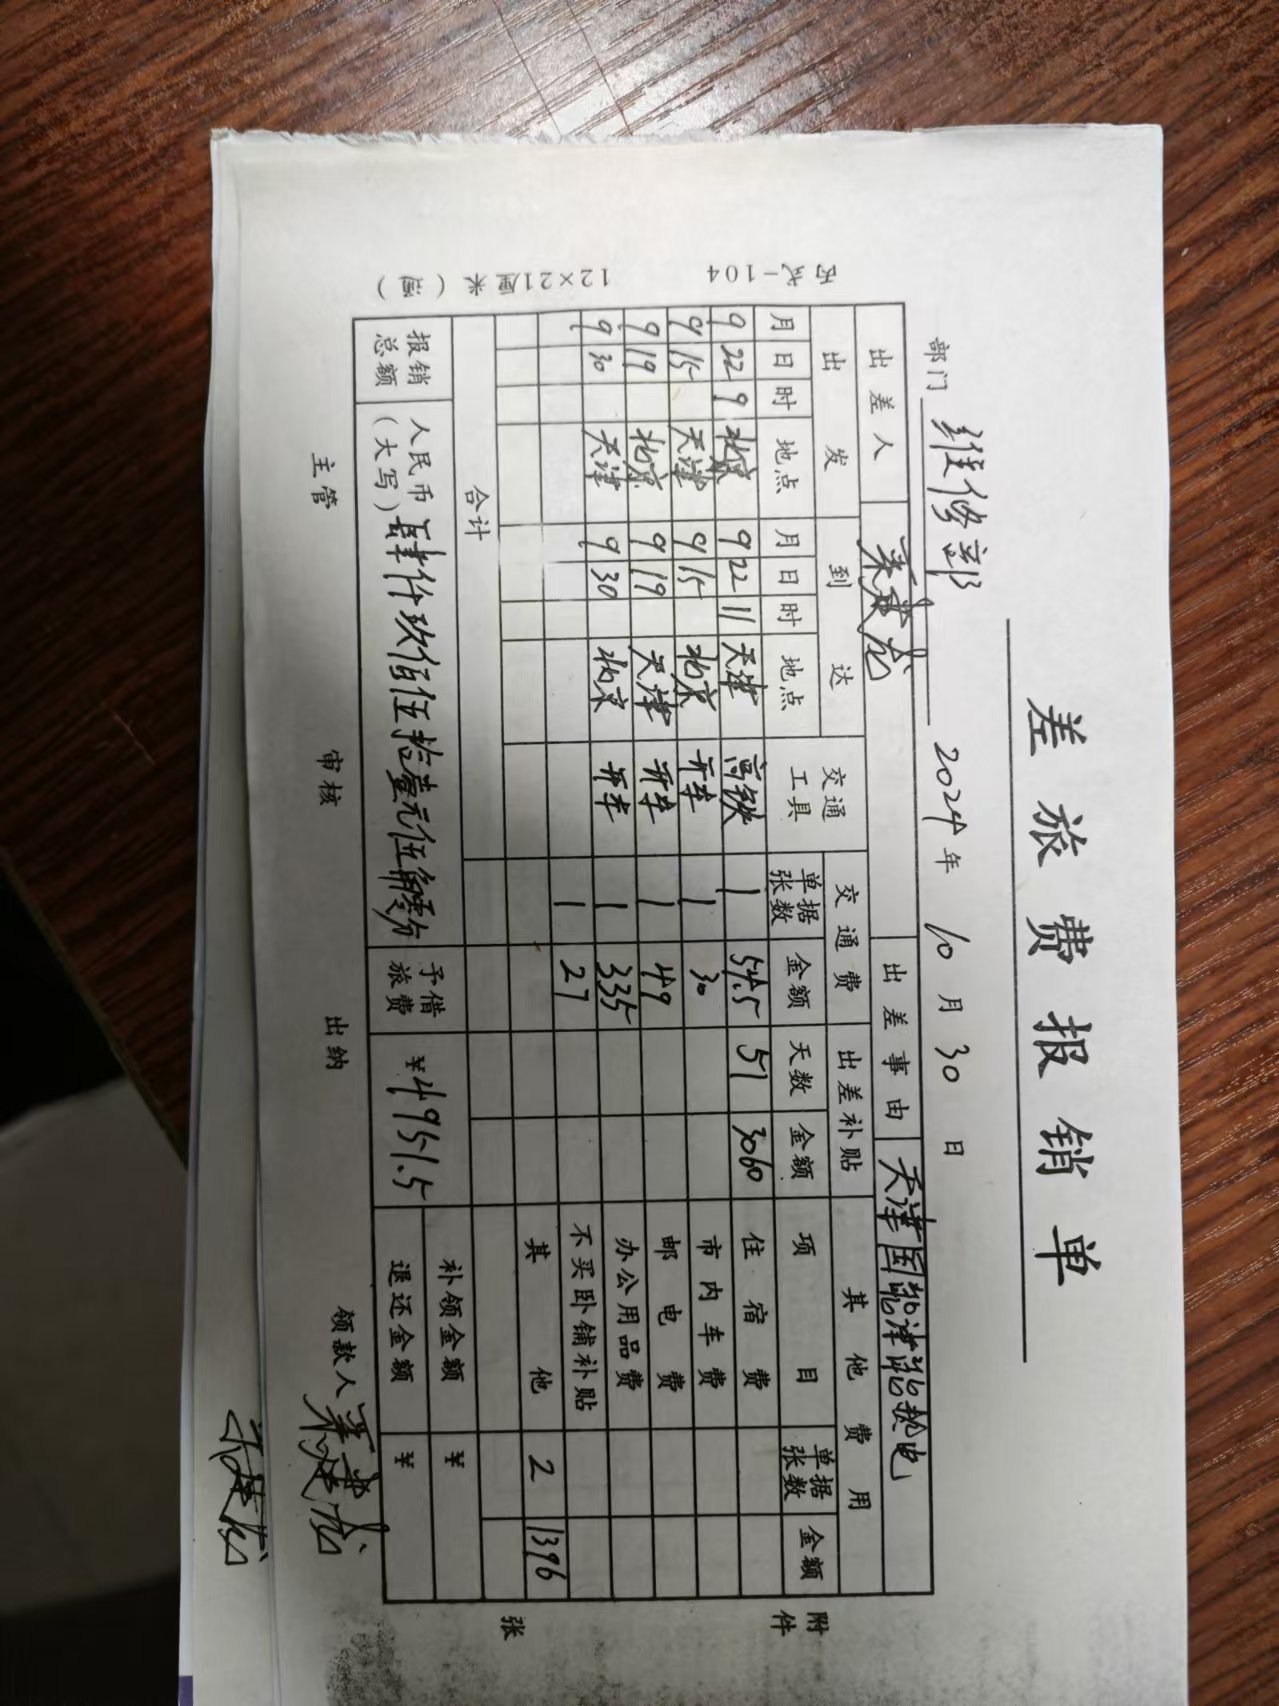 差旅费报销单
部门 维修部 2024年 10月 30日
出差人 出差事由 天津国能津能热电
出发 到达 交通工具 交通费 出差补贴 其他费用
月 日 时 地点 月 日 时 地点 单据张数 金额 天数 金额 项目 单据张数 金额
9 22 9 北京 9 22 11 天津 高铁 1 54.5 51 3060 住宿费
9 15 天津 9 15 北京 开车 1 30 市内车费
9 19 北京 9 19 天津 开车 1 49 邮电费
9 30 天津 9 30 北京 开车 1 335 办公用品费
1 27 不买卧铺补贴
其他 2 1396
合计
报销总额 人民币(大写) 肆仟玖佰伍拾壹元伍角零分 予借旅费 ¥4951.5 补领金额 ¥
退还金额 ¥
主管 审核 出纳 领款人
附件 张
丙式-104 12×21厘米 (值)